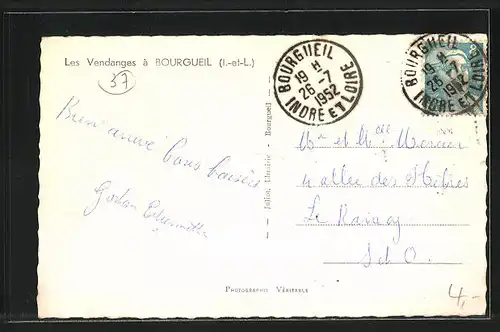 Les Vendanges à BOURGUEIL (I.-et-L.)
37
BOURGUEIL
19 H
26-7
1952
INDRE ET LOIRE
BOURGUEIL
19 H
26-7
1952
INDRE ET LOIRE
Bien arrivé bons baisers
Mr et Mme Mercier
allée des
Le Raincy
S et O.
Julliot, Librairie - Bourgueil
PHOTOGRAPHIE VÉRITABLE
4,-